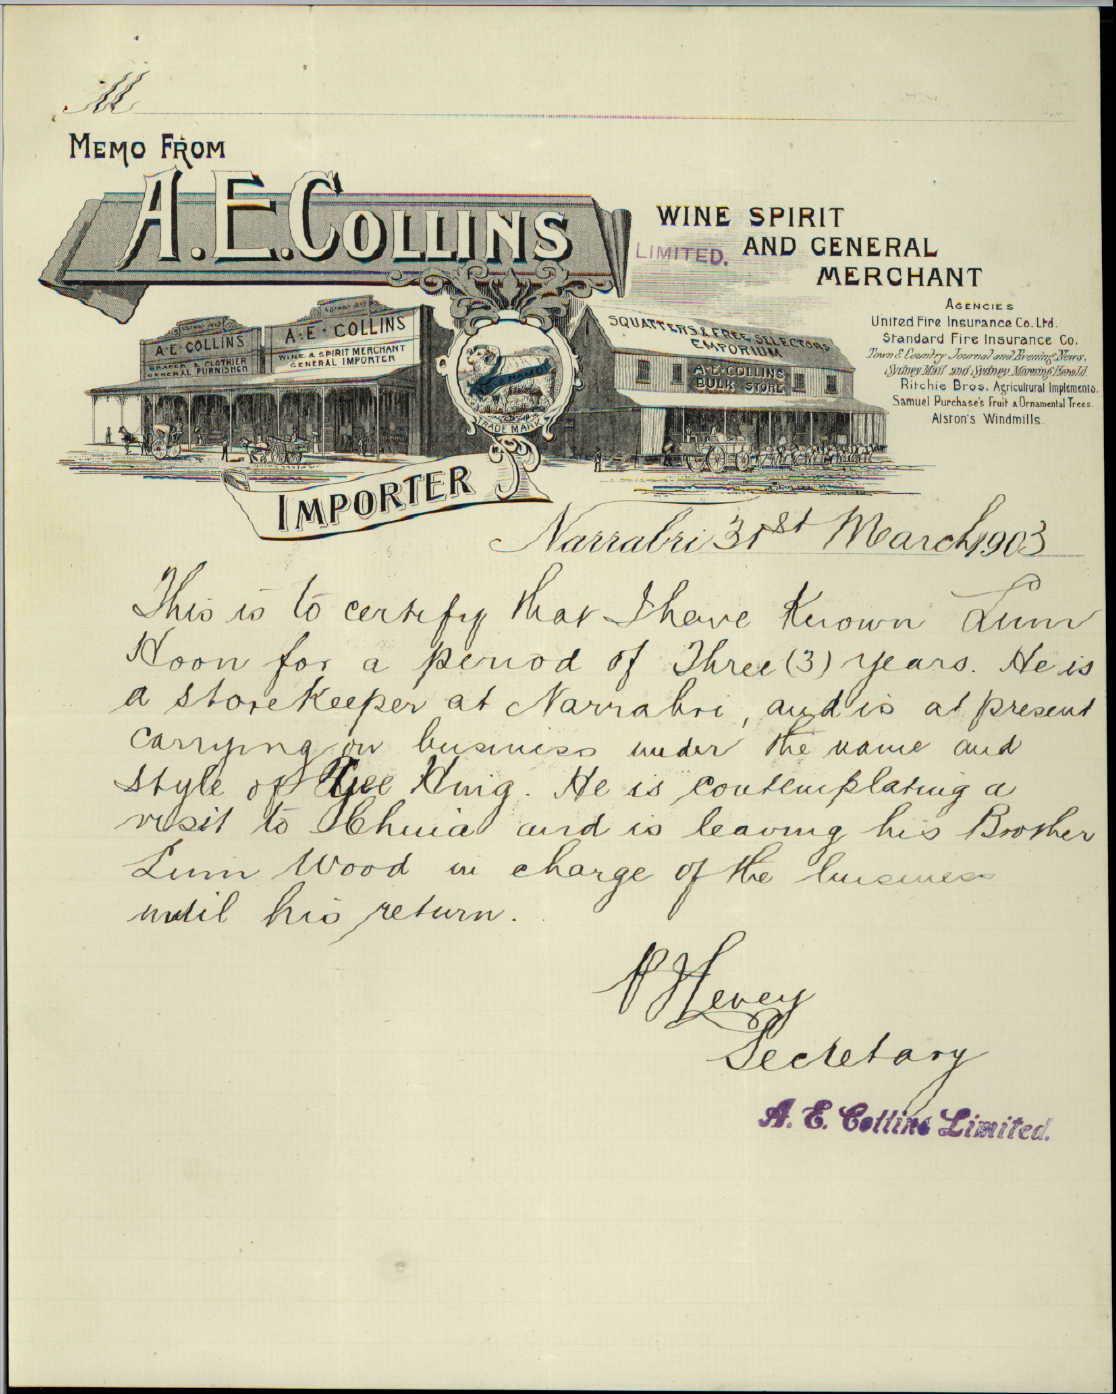 M
MEMO FROM
A. E. COLLINS
WINE SPIRIT
LIMITED. AND GENERAL
MERCHANT
AGENCIES
United Fire Insurance Co. Ltd.
Standard Fire Insurance Co.
Town & Country Journal and Evening News.
Sydney Mail and Sydney Morning Herald
Ritchie Bros. Agricultural Implements.
Samuel Purchase's Fruit & Ornamental Trees.
Alston's Windmills.
A·E·COLLINS
DRAPER & CLOTHIER
GENERAL FURNISHER
A·E·COLLINS
WINE & SPIRIT MERCHANT
GENERAL IMPORTER
TRADE MARK
SQUATTERS & FREE SELECTORS
EMPORIUM
A·E·COLLINS
BULK STORE
IMPORTER
Narrabri 31st March 1903
This is to certify that I have known Lum
Hoon for a period of Three (3) years. He is
a storekeeper at Narrabri, and is at present
carrying on business under the name and
style of Hing. He is contemplating a
visit to China and is leaving his Brother
Lum Wood in charge of the business
until his return.
P Hevey
Secretary
A. E. Collins Limited.